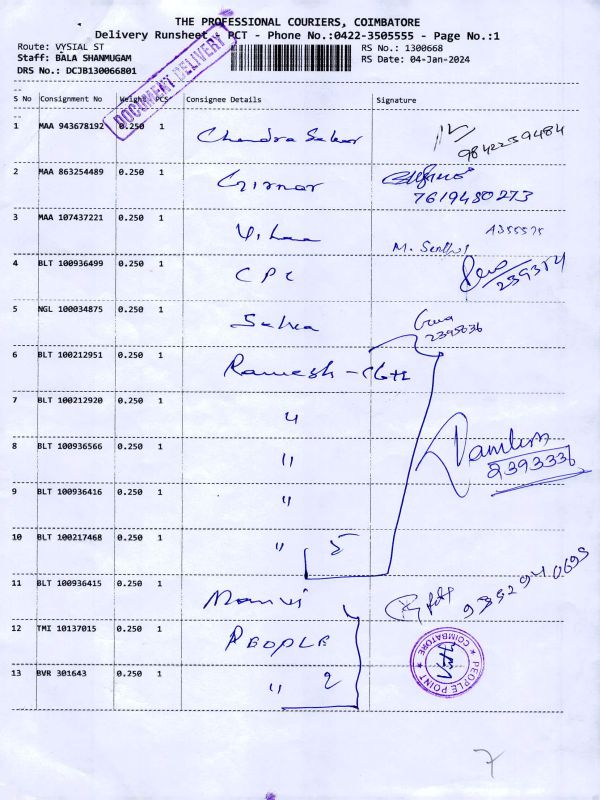 THE PROFESSIONAL COURIERS, COIMBATORE
Delivery Runsheet - PCT - Phone No.:0422-3505555 - Page No.:1
Route: VYSIAL ST RS No.: 1300668
Staff: BALA SHANMUGAM RS Date: 04-Jan-2024
DRS No.: DCJB130066801
DOCUMENT DELIVERY
S No Consignment No Weight PCS Consignee Details Signature
1 MAA 943678192 0.250 1 Chandra Sekar 9842239484
2 MAA 863254489 0.250 1 Girnar 7619480273
3 MAA 107437221 0.250 1 M. Senthil
4 BLT 100936499 0.250 1 CPC
5 NGL 100034875 0.250 1 2395836
6 BLT 100212951 0.250 1 Ramesh
7 BLT 100212920 0.250 1 "
8 BLT 100936566 0.250 1 " 2393336
9 BLT 100936416 0.250 1 "
10 BLT 100217468 0.250 1 " 5
11 BLT 100936415 0.250 1
12 TMI 10137015 0.250 1 PEOPLE
PEOPLE POINT * COIMBATORE *
13 BVR 301643 0.250 1 " 2
7